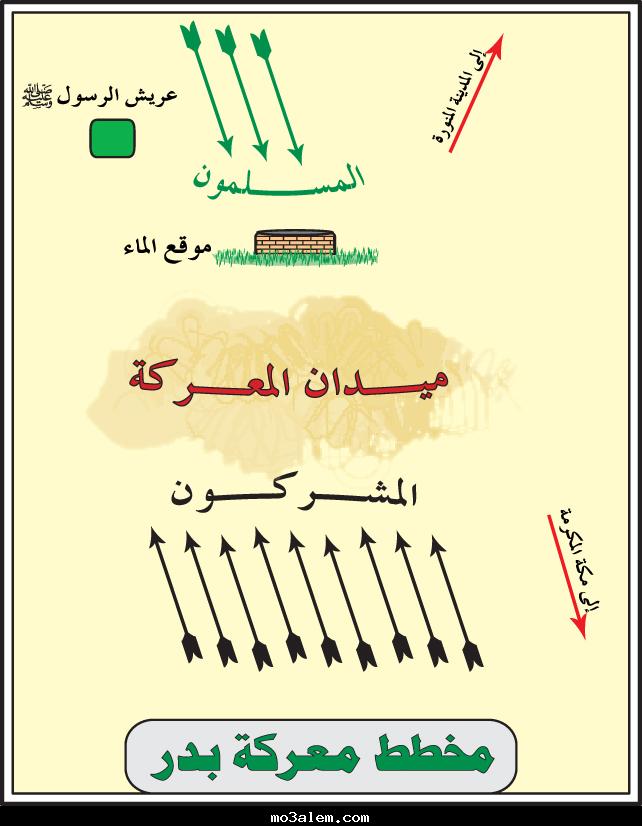 إلى المدينة المنورة
عريش الرسول ﷺ
المسلمون
موقع الماء
ميدان المعركة
المشركون
إلى مكة المكرمة
مخطط معركة بدر
mo3alem.com